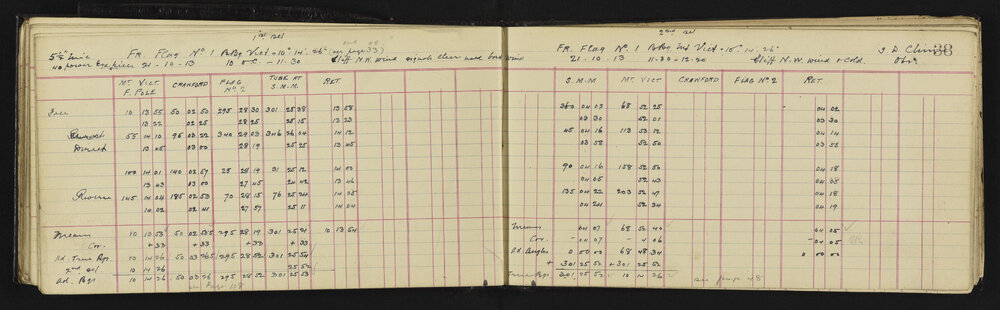 1st Set
5½" Mic Fr. Flag No 1 Brg Vict = 10° . 14' . 26" (see page 33)
40 power Eyepiece 21 - 10 - 13 10 0'C - 11.30 Stiff N.W. wind signals clear cold wind
MT. VICT. F. POLE CRAWFORD FLAG No 2 TUBE AT S.M.M. RET.
Face 10 13 55 50 02 50 295 28 30 301 25 38 13 58
13 22 02 25 28 25 25 15 13 23
55 14 10 95 03 22 340 29 03 346 26 04 14 12
Direct 13 05 03 00 28 19 25 25 13 05
100 14 01 140 02 57 25 28 19 31 25 12 14 00
13 43 03 00 27 45 24 42 13 46
Reverse 145 14 04 185 02 53 70 28 15 76 25 24 14 05
14 02 02 41 27 57 25 11 14 04
Means 10 13 53 50 02 53 295 28 19 301 25 21 10 13 54
Cor. + 33 + 33 + 33 + 33
Ad. True Brgs 10 14 26 50 03 26 295 28 52 301 25 54
2nd set 10 14 26 25 52
Ad. Brgs 10 14 26 50 03 26 295 28 52 301 25 53
see Page 118
2nd Set
Fr. Flag No. 1 Brg Vict = 10° . 14' . 26" J. D. Clin 38
21 . 10 . 13 11-30 - 12-20 Stiff N.W. wind & cold. Obsr.
S.M.M MT. VICT CRAWFORD FLAG No 2 RET.
360 04 03 68 52 25 04 02
03 30 52 01 03 30
45 04 16 113 53 12 04 14
03 58 52 50 03 55
90 04 16 158 52 50 04 18
04 05 52 43 04 05
135 04 22 203 52 47 04 18
04 24 52 34 04 19
Means 04 07 68 52 40 04 05
Cor. - 04 07 - 4 06 - 04 05
Ad. Angles 0 00 00 68 48 34 0 00 00
+ 301 25 52 + 301 25 52
True Brgs 301 25 52 10 14 26
see page 48